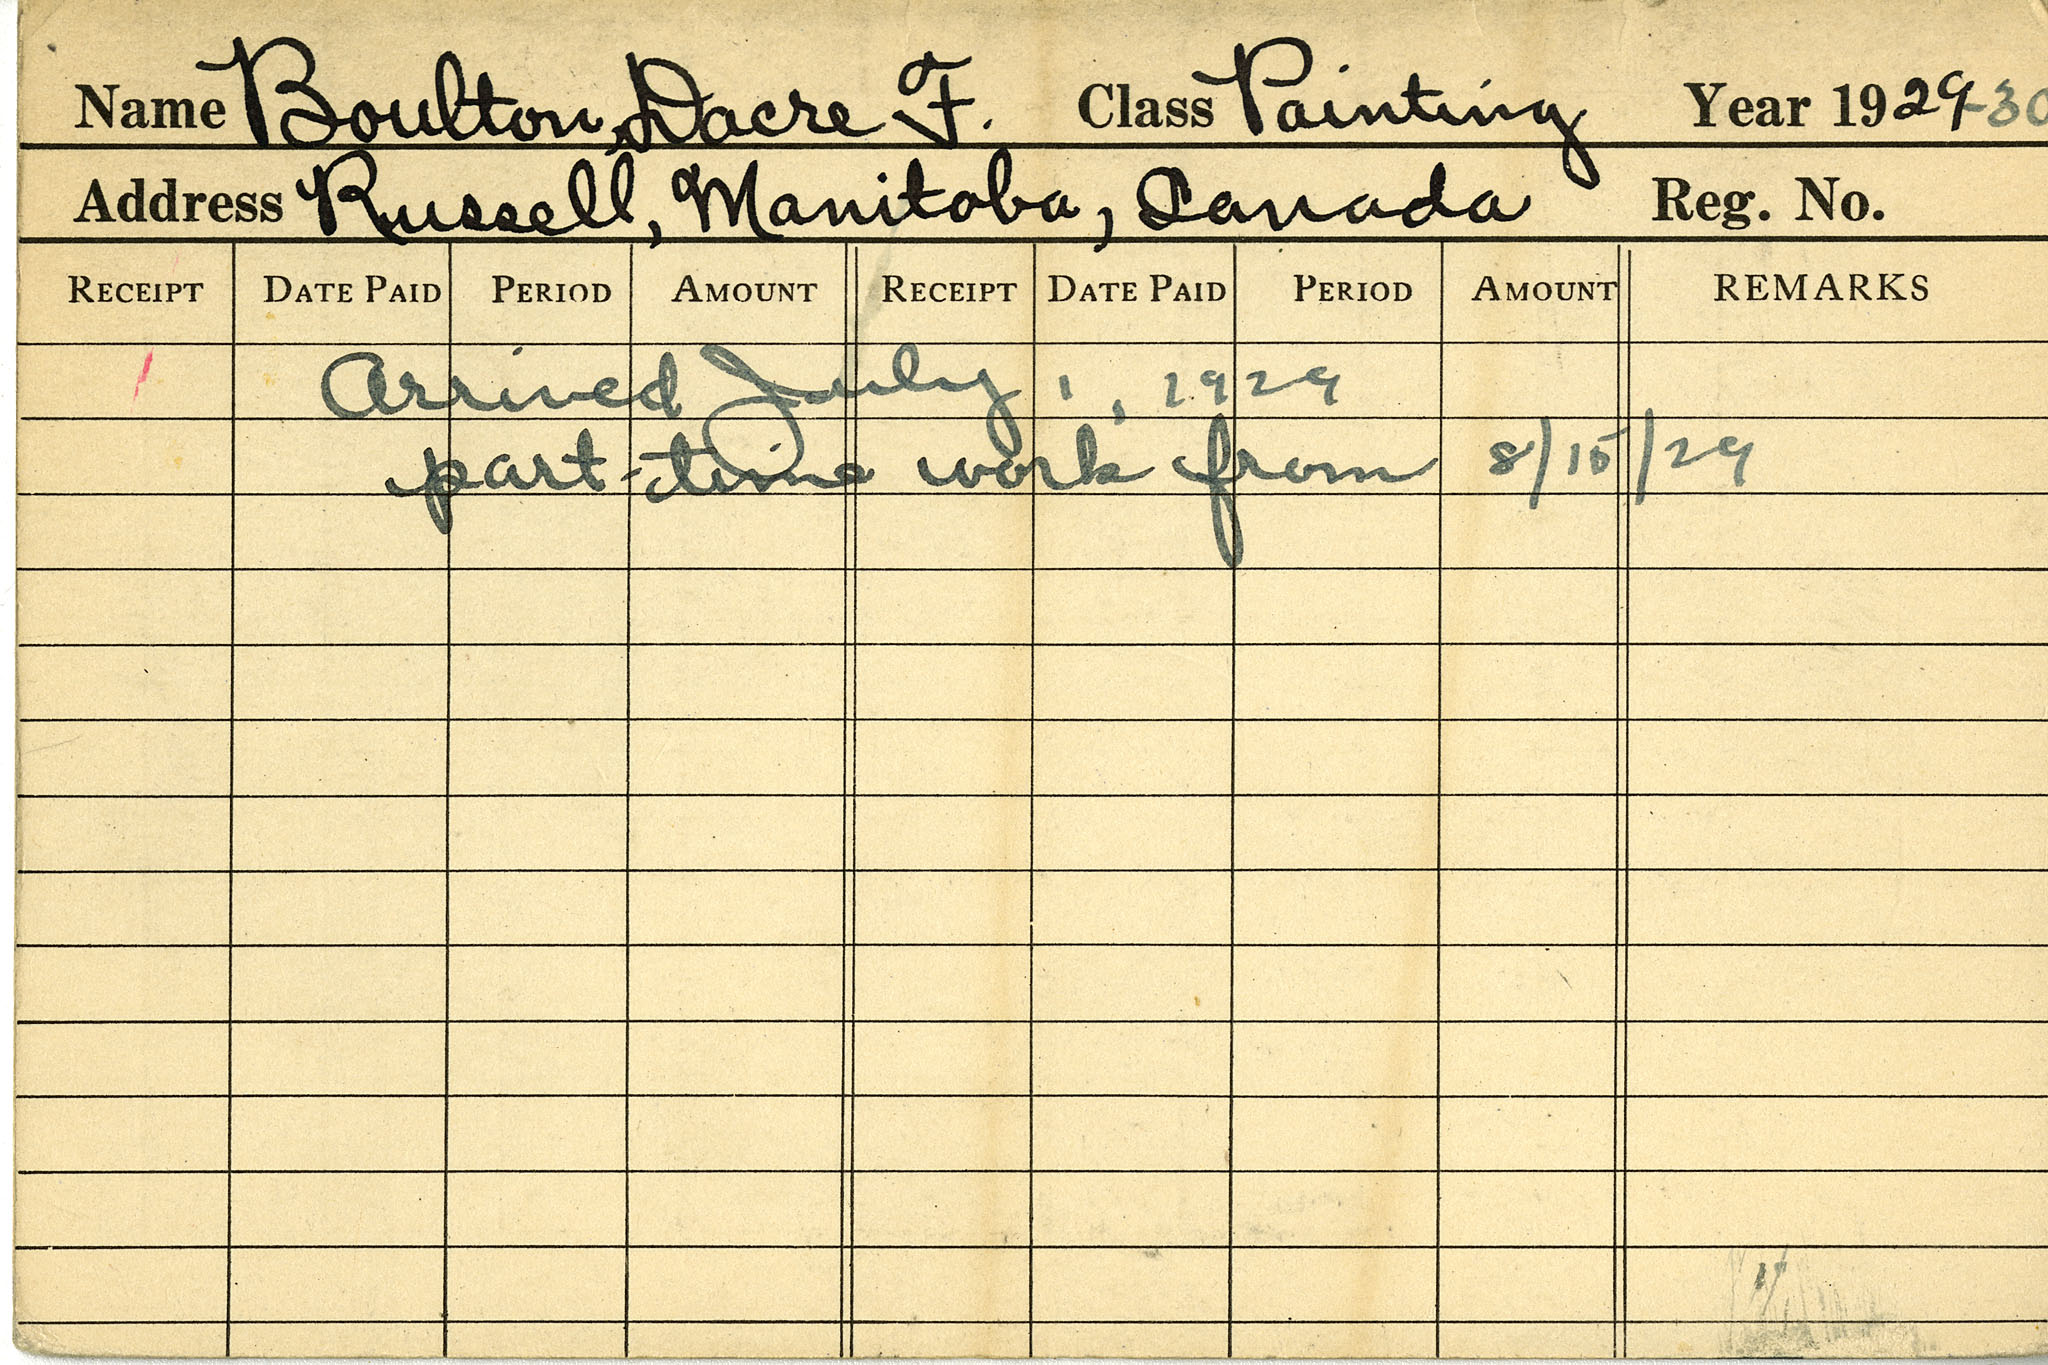 Name Boulton, Dacre F. Class Painting Year 1929-30
Address Russell, Manitoba, Canada Reg. No.
RECEIPT DATE PAID PERIOD AMOUNT RECEIPT DATE PAID PERIOD AMOUNT REMARKS
Arrived July 1, 1929
part-time work from 8/15/29